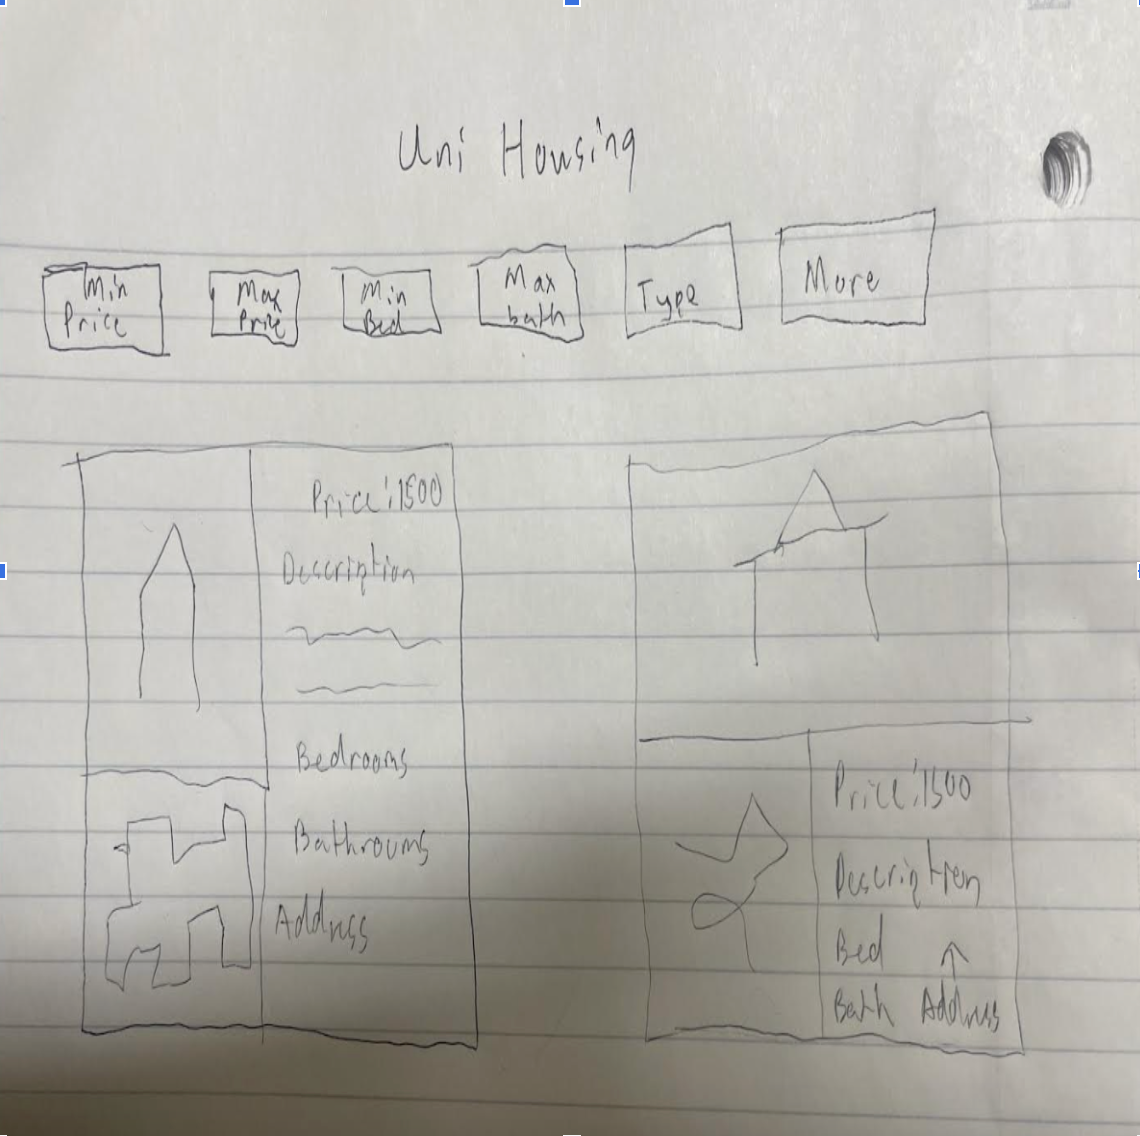 Uni Housing
Min
Price
Max
Price
Min
Bed
Max
bath
Type
More
Price: 1500
Description
Bedrooms
Bathrooms
Address
Price: 1500
Description
Bed
Bath Address